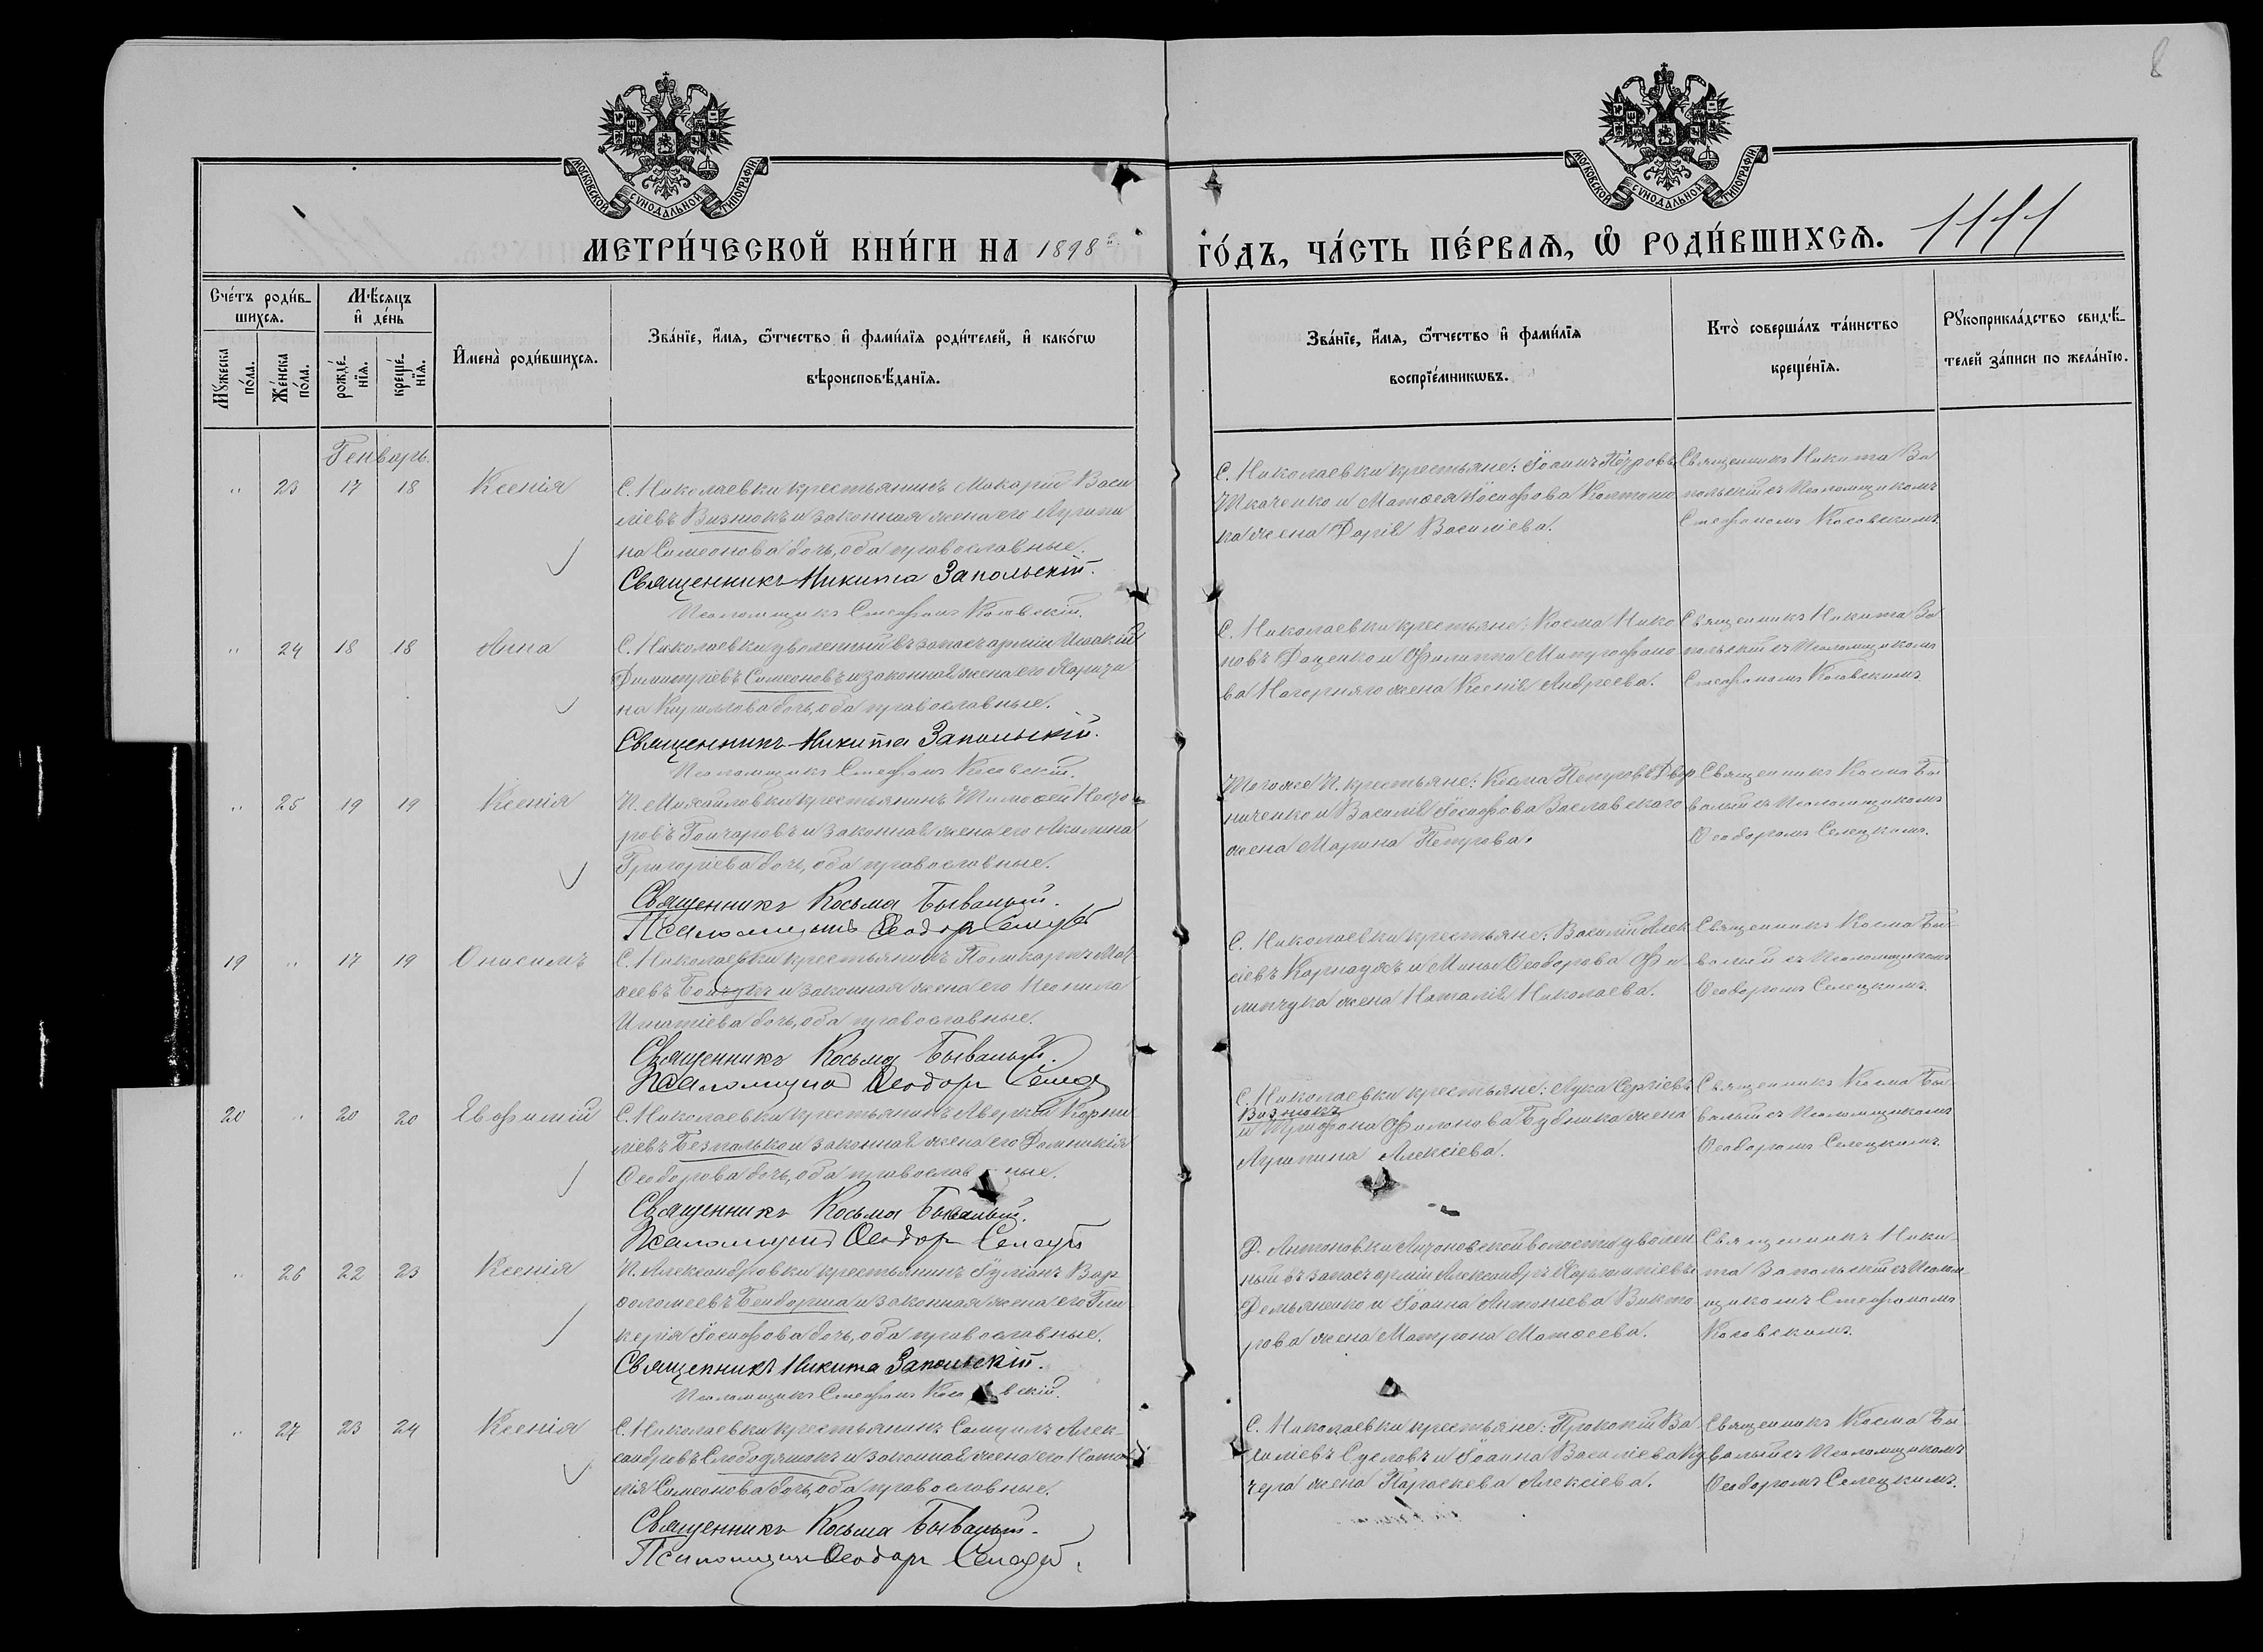 8
МОСКОВСКОЙ СѴНОДАЛЬНОЙ ТИПОГРАФІИ
МОСКОВСКОЙ СѴНОДАЛЬНОЙ ТИПОГРАФІИ
МЕТРИ́ЧЕСКОЙ КНИ́ГИ НА 1898 й
ГО́ДЪ, ЧА́СТЬ ПЕ́РВАѦ, Ѡ РОДИ́ВШИХСѦ. 1111
Сче́тъ роди́в-
шихсѧ.
Мꙋжеска
по́ла.
Же́нска
по́ла.
Мѣ́сѧцъ
и҆ де́нь
рожде́-
нїѧ.
креще́-
нїѧ.
И҆мена̀ роди́вшихсѧ.
Зва́нїе, и҆́мѧ, ѻ҆́тчество и҆ фами́лїѧ роди́телей, и҆ како́гѡ
вѣроисповѣ́данїѧ.
Зва́нїе, и҆́мѧ, ѻ҆́тчество и҆ фами́лїѧ
воспрїе́мникѡвъ.
Кто̀ соверша́лъ та́инство
креще́нїѧ.
Рꙋкоприкла́дство свидѣ́-
телей за́писи по жела́нїю.
Генварь.
" 23 17 18 Ксенія
С. Николаевки крестьянинъ Макарій Васи
ліевъ Визнюкъ и законная жена его Агрипи
на Симеонова дочь, оба православные.
Священникъ Никита Запольскій.
Псаломщикъ Стефанъ Косовскій.
С. Николаевки крестьяне: Іоаннъ Петровъ
Ткаченко и Матѳея Іосифова Колтоню
ка жена Дарія Василіева.
Священникъ Никита За
польскій съ Псаломщикомъ
Стефаномъ Косовскимъ.
" 24 18 18 Анна
С. Николаевки уволенный въ запасъ арміи Исаакій
Димитріевъ Симеоновъ и законная жена его Харити
на Кириллова дочь, оба православные.
Священникъ Никита Запольскій.
Псаломщикъ Стефанъ Косовскій.
С. Николаевки крестьяне: Косма Нико
новъ Даценко и Филиппа Митрофано
ва Нагорняго жена Ксенія Андреева.
Священникъ Никита За
польскій съ Псаломщикомъ
Стефаномъ Косовскимъ.
" 25 19 19 Ксенія
П. Михайловки крестьянинъ Тимоѳей
ровъ Гончаровъ и законная жена его Акилина
Григоріева дочь, оба православные.
Священникъ Косьма Бывалый.
Псаломщикъ Ѳеодоръ Селецкій
Того же П. крестьяне: Косма Петровъ Двор
ниченко и Василія Іосифова Заславского
жена Марина Петрова.
Священникъ Косма Бы
валый съ Псаломщикомъ
Ѳеодоромъ Селецкимъ.
19 " 17 19 Онисимъ
С. Николаевки крестьянинъ Поликарпъ Мат
ѳеевъ Бойчукъ и законная жена его Неонила
Игнатіева дочь, оба православные.
Священникъ Косьма Бывалый.
Псаломщикъ Ѳеодоръ Селецкій
С. Николаевки крестьяне: Василій Алек
сіевъ Карнаухъ и Мины Ѳеодорова Фи-
липчука жена Наталія Николаева.
Священникъ Косма Бы-
валый съ Псаломщикомъ
Ѳеодоромъ Селецкимъ.
20 " 20 20 Евфимій
С. Николаевки крестьянинъ Аверкій Корни
ліевъ Безпалько и законная жена его Домникія
Ѳеодорова дочь, оба православ ные.
Священникъ Косьма Бывалый.
Псаломщикъ Ѳеодоръ Селецкій
С. Николаевки крестьяне: Лука Сергіевъ
Визнюкъ
и Трифона Филонова Будника жена
Агрипина Алексіева.
Священникъ Косма Бы
валый съ Псаломщикомъ
Ѳеодоромъ Селецкимъ.
" 26 22 23 Ксенія
П. Александровки крестьянинъ Іуліанъ Вар-
ѳоломеевъ Бендорша и законная жена его Гли
керія Іосифова дочь, оба православные.
Священникъ Никита Запольскій.
Псаломщикъ Стефанъ Косовскій.
Д. Антоновки Антоновской волости уволен
ный въ запасъ арміи Александръ Харлампіевъ
Демьяненко и Іоанна Антоніева Викто
рова жена Матрона Матѳеева.
Священникъ Ники-
та Запольскій съ Псалом-
щикомъ Стефаномъ
Косовскимъ.
" 27 23 24 Ксенія
С. Николаевки крестьянинъ Самуилъ Алек-
сандровъ Слободянюкъ и законная жена его Ната
лія Симеонова дочь, оба православные.
Священникъ Косьма Бывалый.
Псаломщикъ Ѳеодоръ Селецкій.
С. Николаевки крестьяне: Прокопій Ва
силіевъ Сусловъ и Іоанна Василіева Ку
чера жена Параскева Алексіева.
Священникъ Косма Бы-
валый съ Псаломщикомъ
Ѳеодоромъ Селецкимъ.